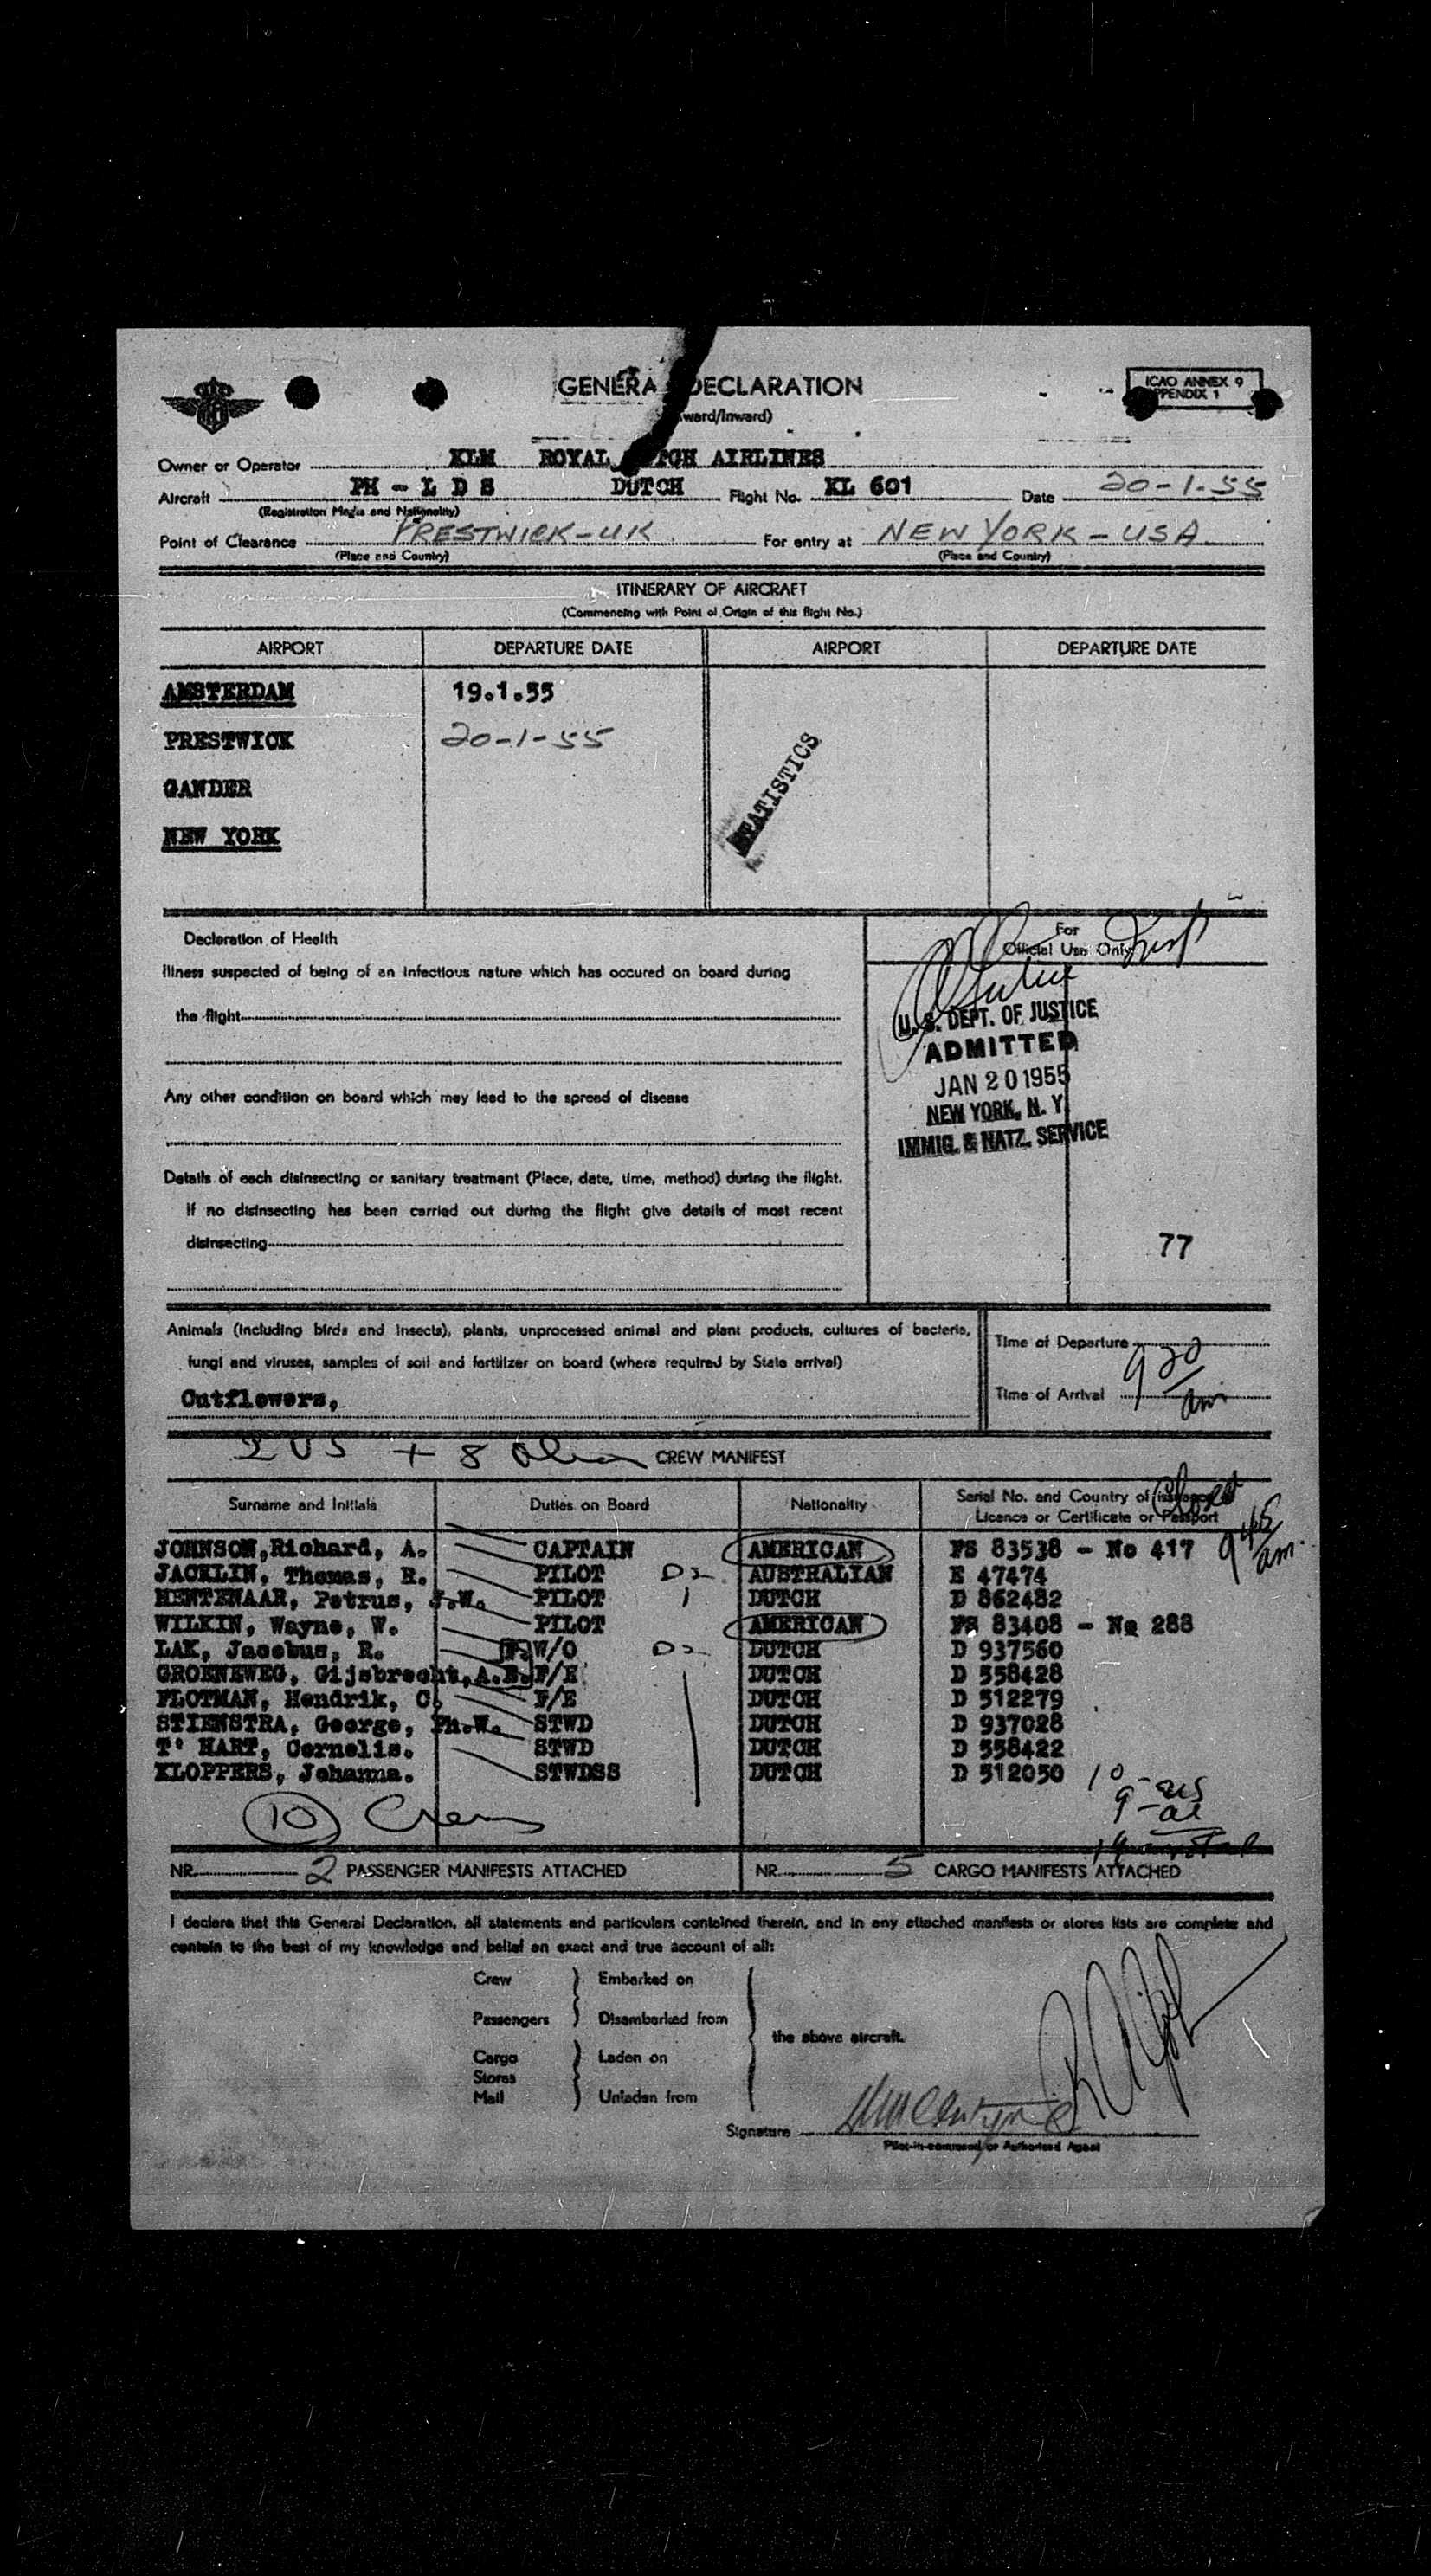 GENERA DECLARATION
ward/Inward)
ICAO ANNEX 9
PPENDIX 1
Owner or Operator KLM ROYAL TCH AIRLINES
Aircraft PH - L D S DUTCH Flight No. KL 601 Date 20-1-55
(Registration Marks and Nationality)
Point of Clearance PRESTWICK-UK For entry at NEW YORK - USA
(Place and Country) (Place and Country)
ITINERARY OF AIRCRAFT
(Commencing with Point of Origin of this flight No.)
AIRPORT DEPARTURE DATE AIRPORT DEPARTURE DATE
AMSTERDAM 19.1.55
PRESTWICK 20-1-55
GANDER
NEW YORK
STATISTICS
Declaration of Health
For
Official Use Only
Illness suspected of being of an infectious nature which has occured on board during
the flight
U.S. DEPT. OF JUSTICE
ADMITTED
JAN 20 1955
NEW YORK, N. Y.
IMMIG. & NATZ. SERVICE
Any other condition on board which may lead to the spread of disease
Details of each disinsecting or sanitary treatment (Place, date, time, method) during the flight.
If no disinsecting has been carried out during the flight give details of most recent
disinsecting
77
Animals (including birds and insects), plants, unprocessed animal and plant products, cultures of bacteria,
fungi and viruses, samples of soil and fertilizer on board (where required by State arrival)
Cutflowers,
Time of Departure
Time of Arrival 9 30 am
2 US + 8 CREW MANIFEST
Surname and Initials Duties on Board Nationality Serial No. and Country of issuance
Licence or Certificate or Passport
945 am.
JOHNSON,Richard, A. CAPTAIN AMERICAN FS 83538 - No 417
JACKLIN, Thomas, R. PILOT D2 AUSTRALIAN E 47474
HENTENAAR, Petrus, J.W. PILOT DUTCH D 862482
WILKIN, Wayne, W. PILOT AMERICAN FS 83408 - No 288
LAK, Jacobus, R. F. W/O D2 DUTCH D 937560
GROENEWEG, Gijsbrecht,A.B. F/E DUTCH D 558428
FLOTMAN, Hendrik, C. F/E DUTCH D 512279
STIENSTRA, George, Ph.W. STWD DUTCH D 937028
T' HART, Cornelis. STWD DUTCH D 558422
KLOPPERS, Johanna. STWDSS DUTCH D 512050
10 Crew
NR. 2 PASSENGER MANIFESTS ATTACHED NR. 5 CARGO MANIFESTS ATTACHED
I declare that this General Declaration, all statements and particulars contained therein, and in any attached manifests or stores lists are complete and
contain to the best of my knowledge and belief an exact and true account of all:
Crew Embarked on
Passengers Disembarked from
the above aircraft.
Cargo Laden on
Stores
Mail Unladen from
Signature
Pilot-in-command or Authorised Agent